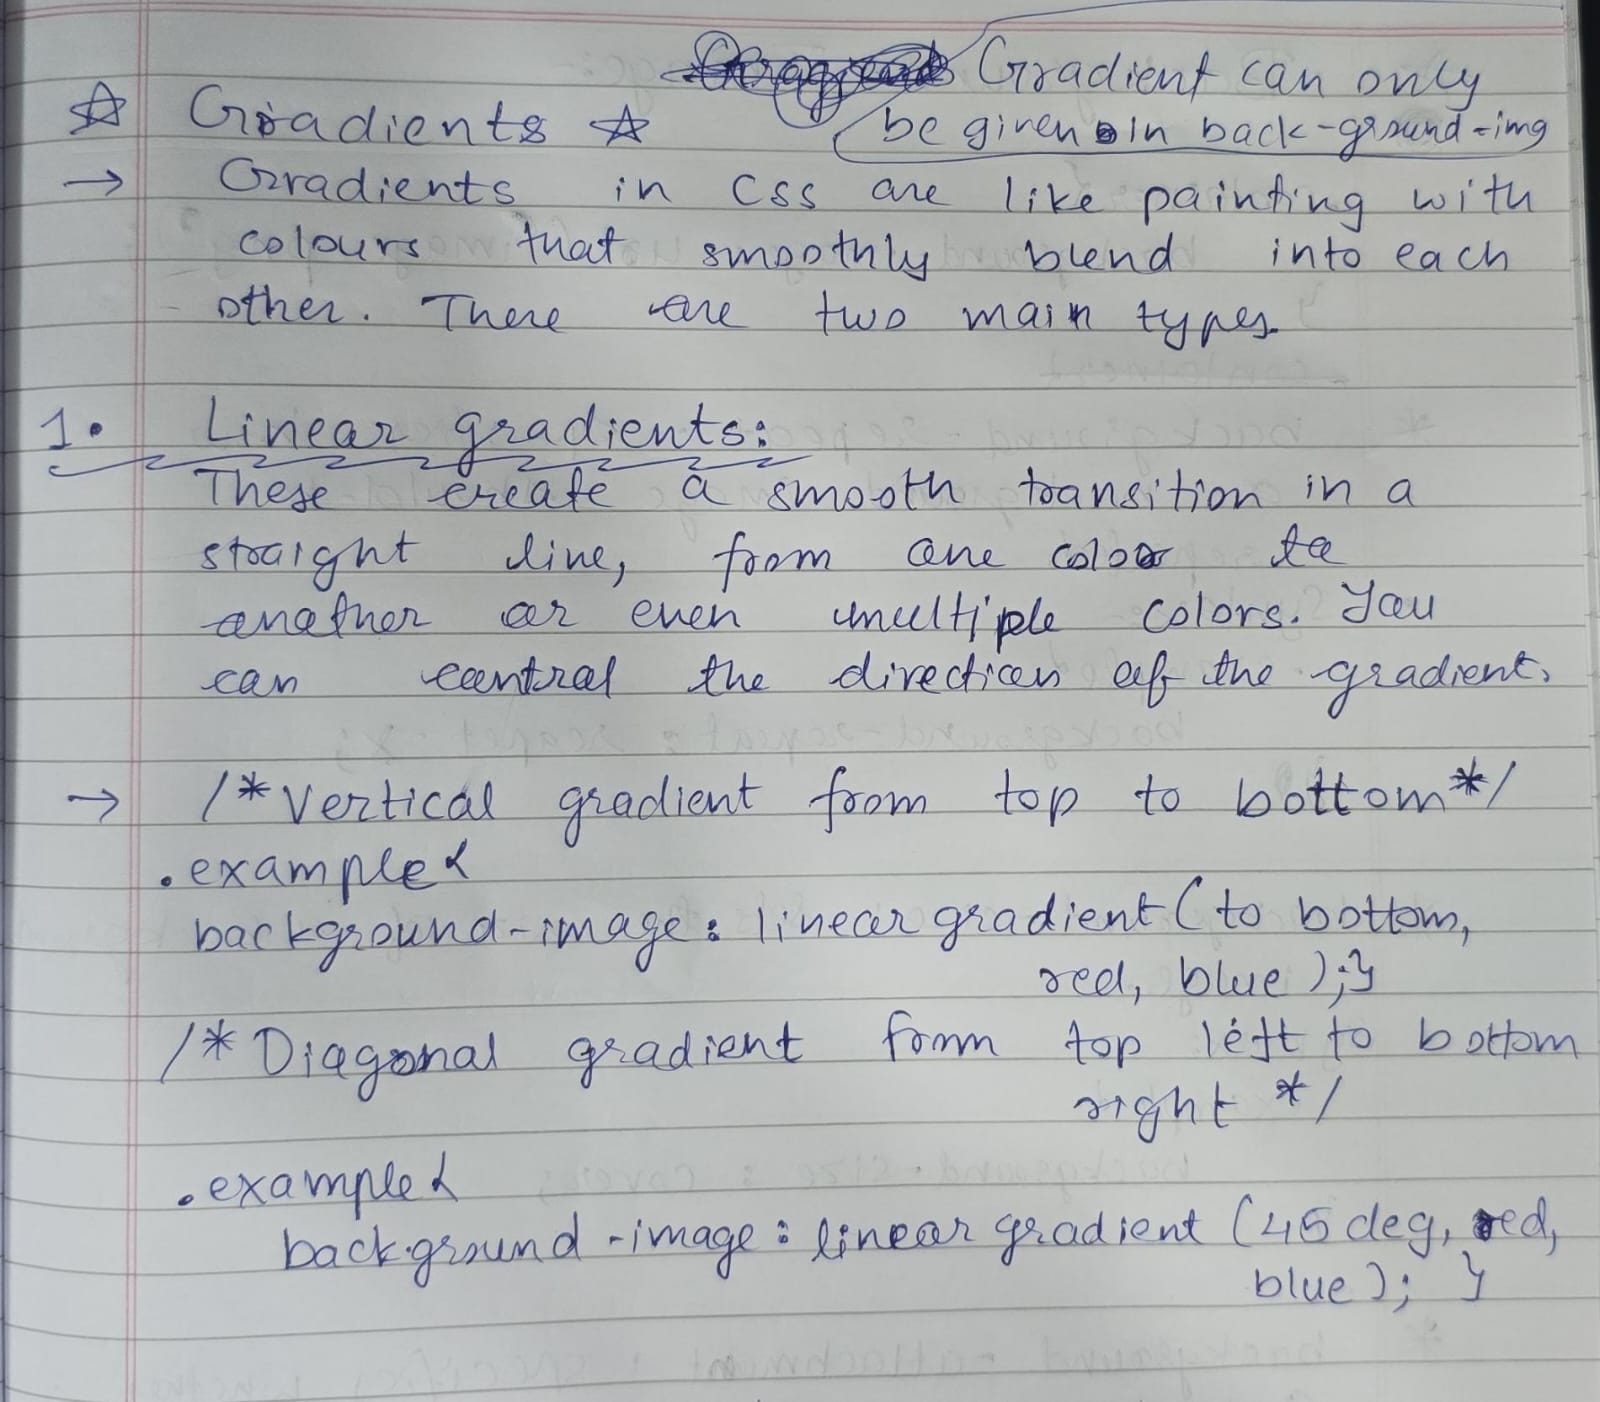 Gradient can only
be given in back-ground-img
☆ Gradients ☆
→ Gradients in CSS are like painting with
colours that smoothly blend into each
other. There are two main types.
1. Linear gradients:
These create a smooth transition in a
straight line, from one color to
another or even multiple colors. You
can control the direction of the gradient.
→ /*Vertical gradient from top to bottom*/
.example{
background-image: linear gradient (to bottom,
red, blue );}
/* Diagonal gradient from top left to bottom
right */
.example{
background-image: linear gradient (45 deg, red,
blue ); }